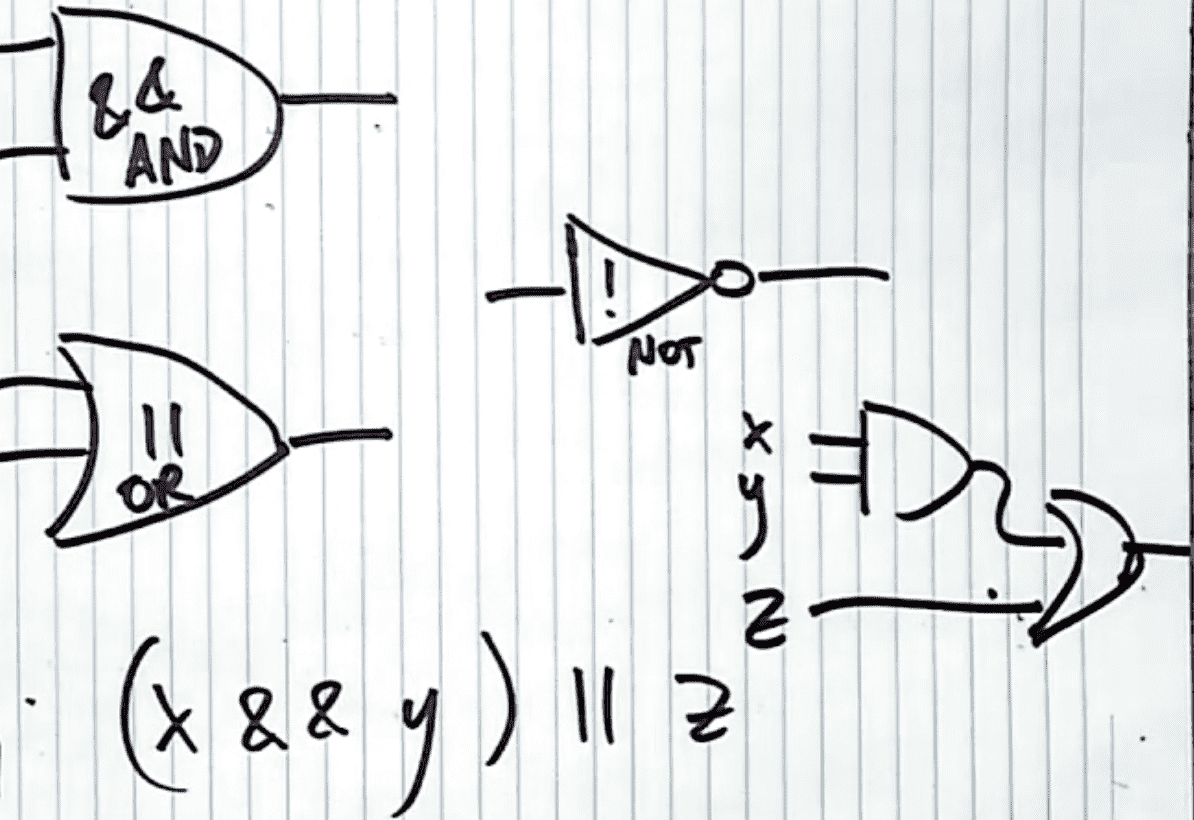 &&
AND
!
NOT
||
OR
x
y
z
(x && y) || z